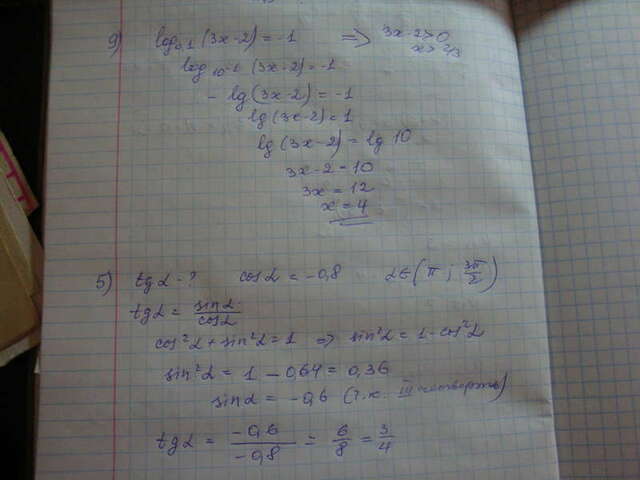 9) log₀,₁ (3x-2) = -1 => 3x-2>0
x > 2/3
log 10⁻¹ (3x-2) = -1
- lg (3x-2) = -1
lg (3x-2) = 1
lg (3x-2) = lg 10
3x-2 = 10
3x = 12
x = 4
5) tg α - ? cos α = -0,8 α ∈ (π ; 3π/2)
tg α = sin α / cos α
cos²α + sin²α = 1 => sin²α = 1 - cos²α
sin²α = 1 - 0,64 = 0,36
sin α = -0,6 (т.к. III четверть)
tg α = -0,6 / -0,8 = 6/8 = 3/4